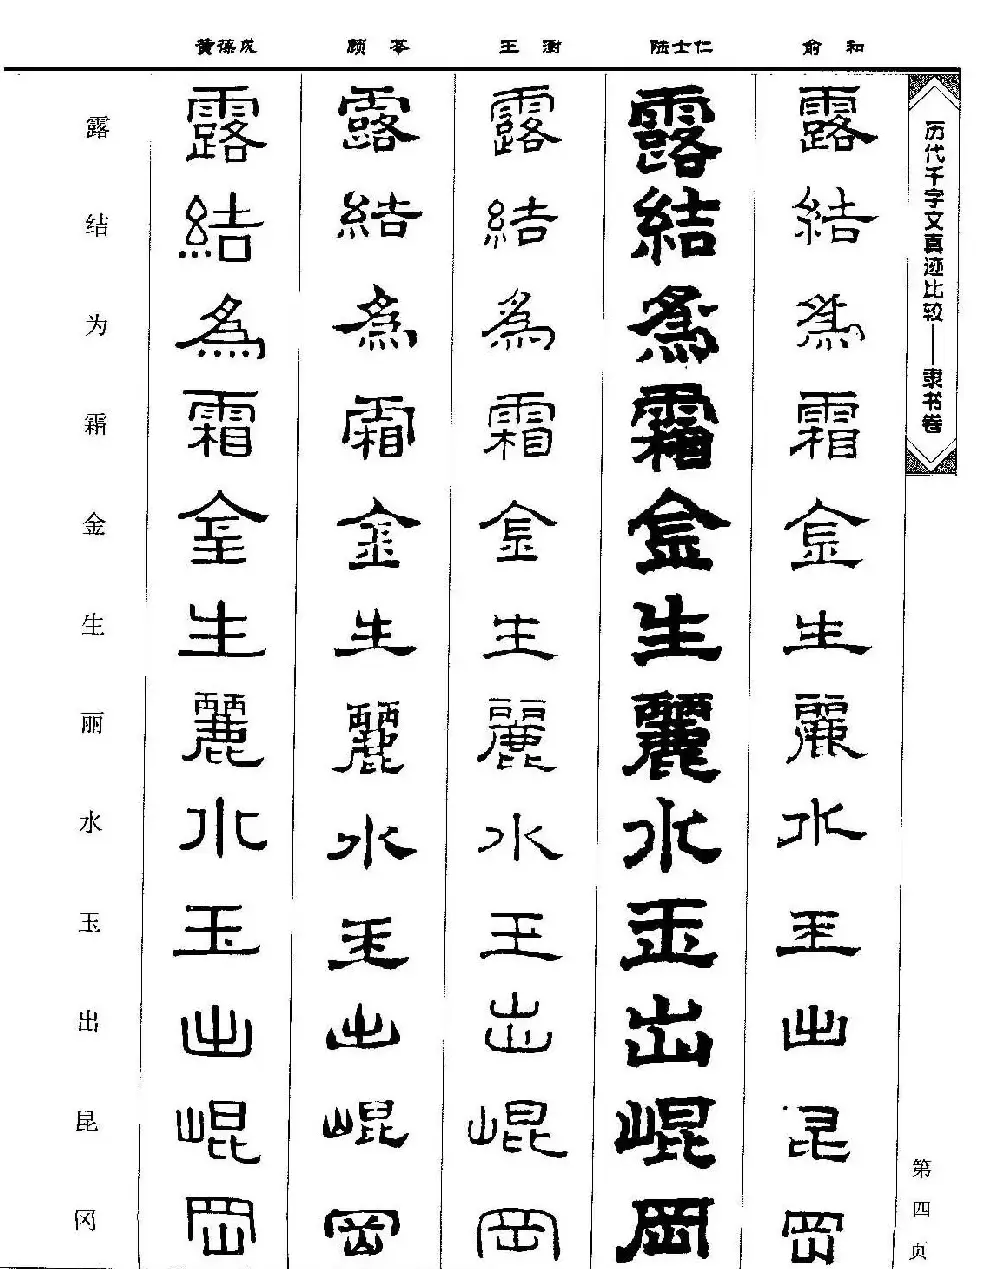 历代千字文真迹比较——隶书卷
第四页
俞和
露結為霜金生麗水玉出昆岡
陆士仁
露結為霜金生麗水玉出崐岡
王澍
露結為霜金生麗水玉出崐岡
顾苓
露結為霜金生麗水玉出崐岡
黄葆戉
露結為霜金生麗水玉出崐岡
露结为霜金生丽水玉出昆冈